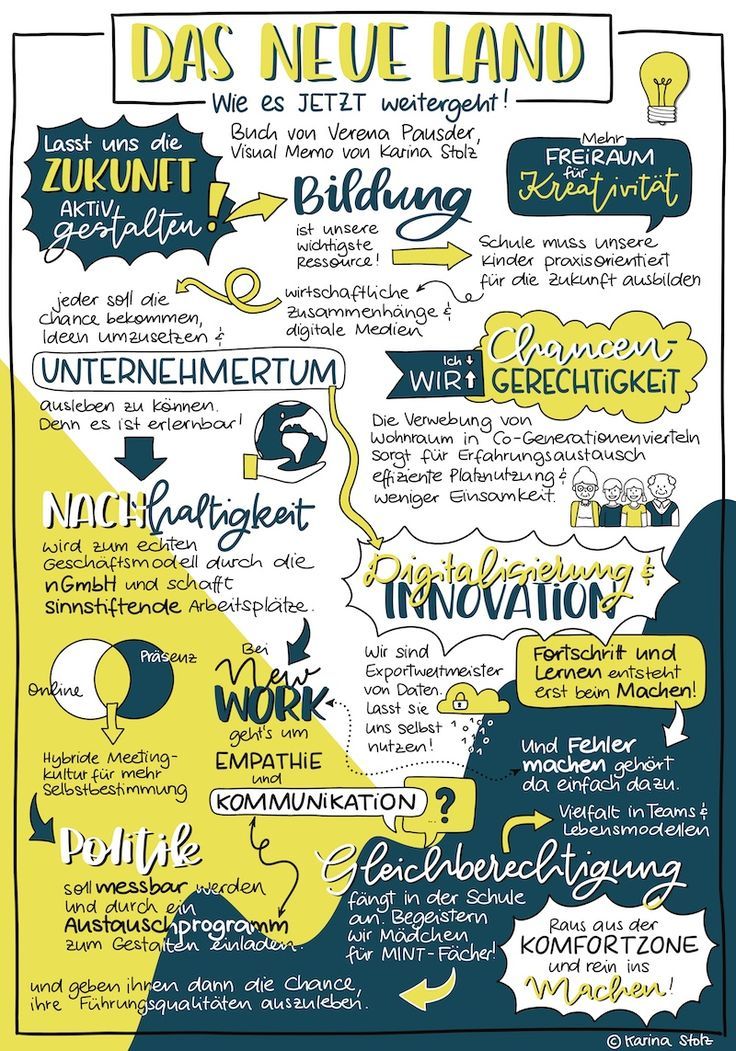 DAS NEUE LAND
Wie es JETZT weitergeht!
Buch von Verena Pausder,
Visual Memo von Karina Stolz
Lasst uns die
ZUKUNFT
AKTIV
gestalten!
Bildung
ist unsere
wichtigste
Ressource!
Mehr
FREIRAUM
für
Kreativität
Schule muss unsere
Kinder praxisorientiert
für die Zukunft ausbilden
wirtschaftliche
Zusammenhänge &
digitale Medien
jeder soll die
Chance bekommen,
Ideen umzusetzen &
UNTERNEHMERTUM
ausleben zu können.
Denn es ist erlernbar!
Ich
WIR
Chancen-
GERECHTIGKEIT
Die Verwebung von
Wohnraum in Co-Generationenvierteln
sorgt für Erfahrungsaustausch
effiziente Platznutzung &
weniger Einsamkeit.
NACHhaltigkeit
wird zum echten
Geschäftsmodell durch die
nGmbH und schafft
sinnstiftende Arbeitsplätze.
Digitalisierung &
INNOVATION
Wir sind
Exportweltmeister
von Daten.
Lasst sie
uns selbst
nutzen!
Fortschritt und
Lernen entsteht
erst beim Machen!
Und Fehler
machen gehört
da einfach dazu.
Online
Präsenz
Hybride Meeting-
kultur für mehr
Selbstbestimmung
Bei
New
WORK
geht's um
EMPATHIE
und
KOMMUNIKATION
?
Politik
soll messbar werden
und durch ein
Austauschprogramm
zum Gestalten einladen.
Vielfalt in Teams &
Lebensmodellen
Gleichberechtigung
fängt in der Schule
an. Begeistern
wir Mädchen
für MINT-Fächer!
und geben ihnen dann die Chance,
ihre Führungsqualitäten auszuleben.
Raus aus der
KOMFORTZONE
und rein ins
Machen!
© Karina Stolz